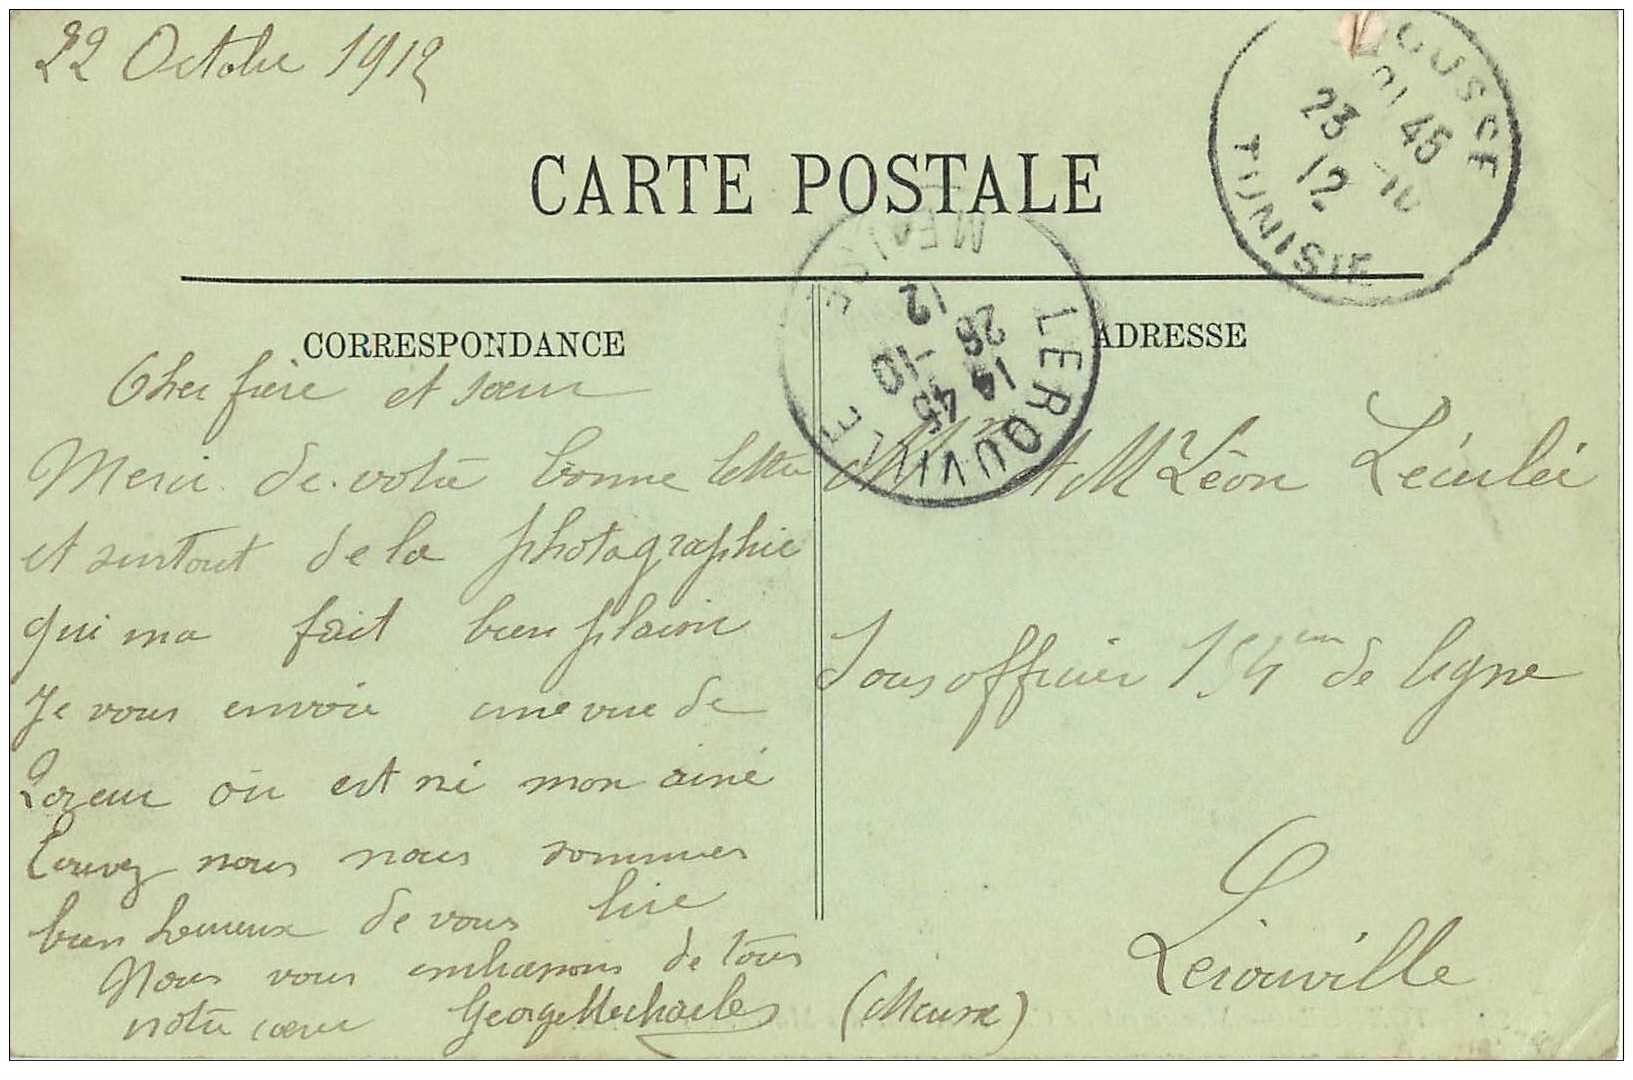 22 Octobre 1912
CARTE POSTALE
SOUSSE
45
23 -10
12
TUNISIE
LEROUVILLE
14 45
26 -10
12
MEUSE
CORRESPONDANCE
Cher frère et sœur
Merci de votre bonne lettre
et surtout de la photographie
qui ma fait bien plaisir
Je vous envoie une vue de
où est né mon ainé
nous nous sommes
bien heureux de vous lire
Nous vous embrassons de tous
notre cœur George
ADRESSE
et Mr Léon
Sous officier 154em de ligne
Lerouville
(Meuse)